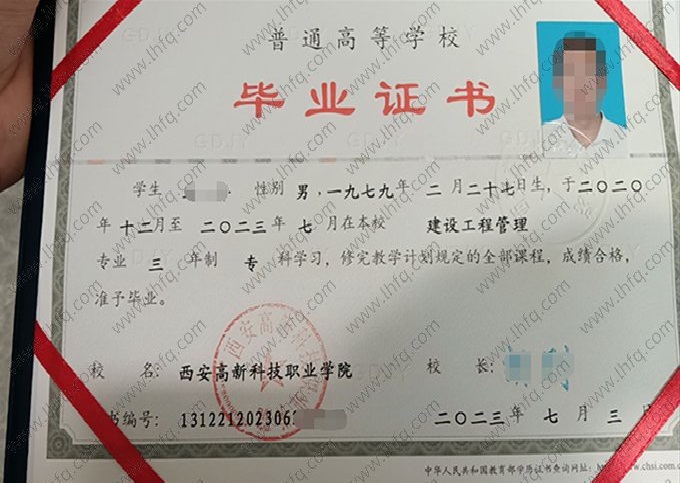 普通高等学校
毕业证书
学生 性别 男，一九七九年 二 月二十七日生，于二〇二〇
年十二月至 二〇二三年 七 月在本校 建设工程管理
专业 三 年制 专 科学习，修完教学计划规定的全部课程，成绩合格，
准予毕业。
校 名：西安高新科技职业学院 校 长：
书编号：131221202306
二〇二三年 七 月 三 日
中华人民共和国教育部学历证书查询网址：http://www.chsi.com.cn
www.lhfq.com
GDJY